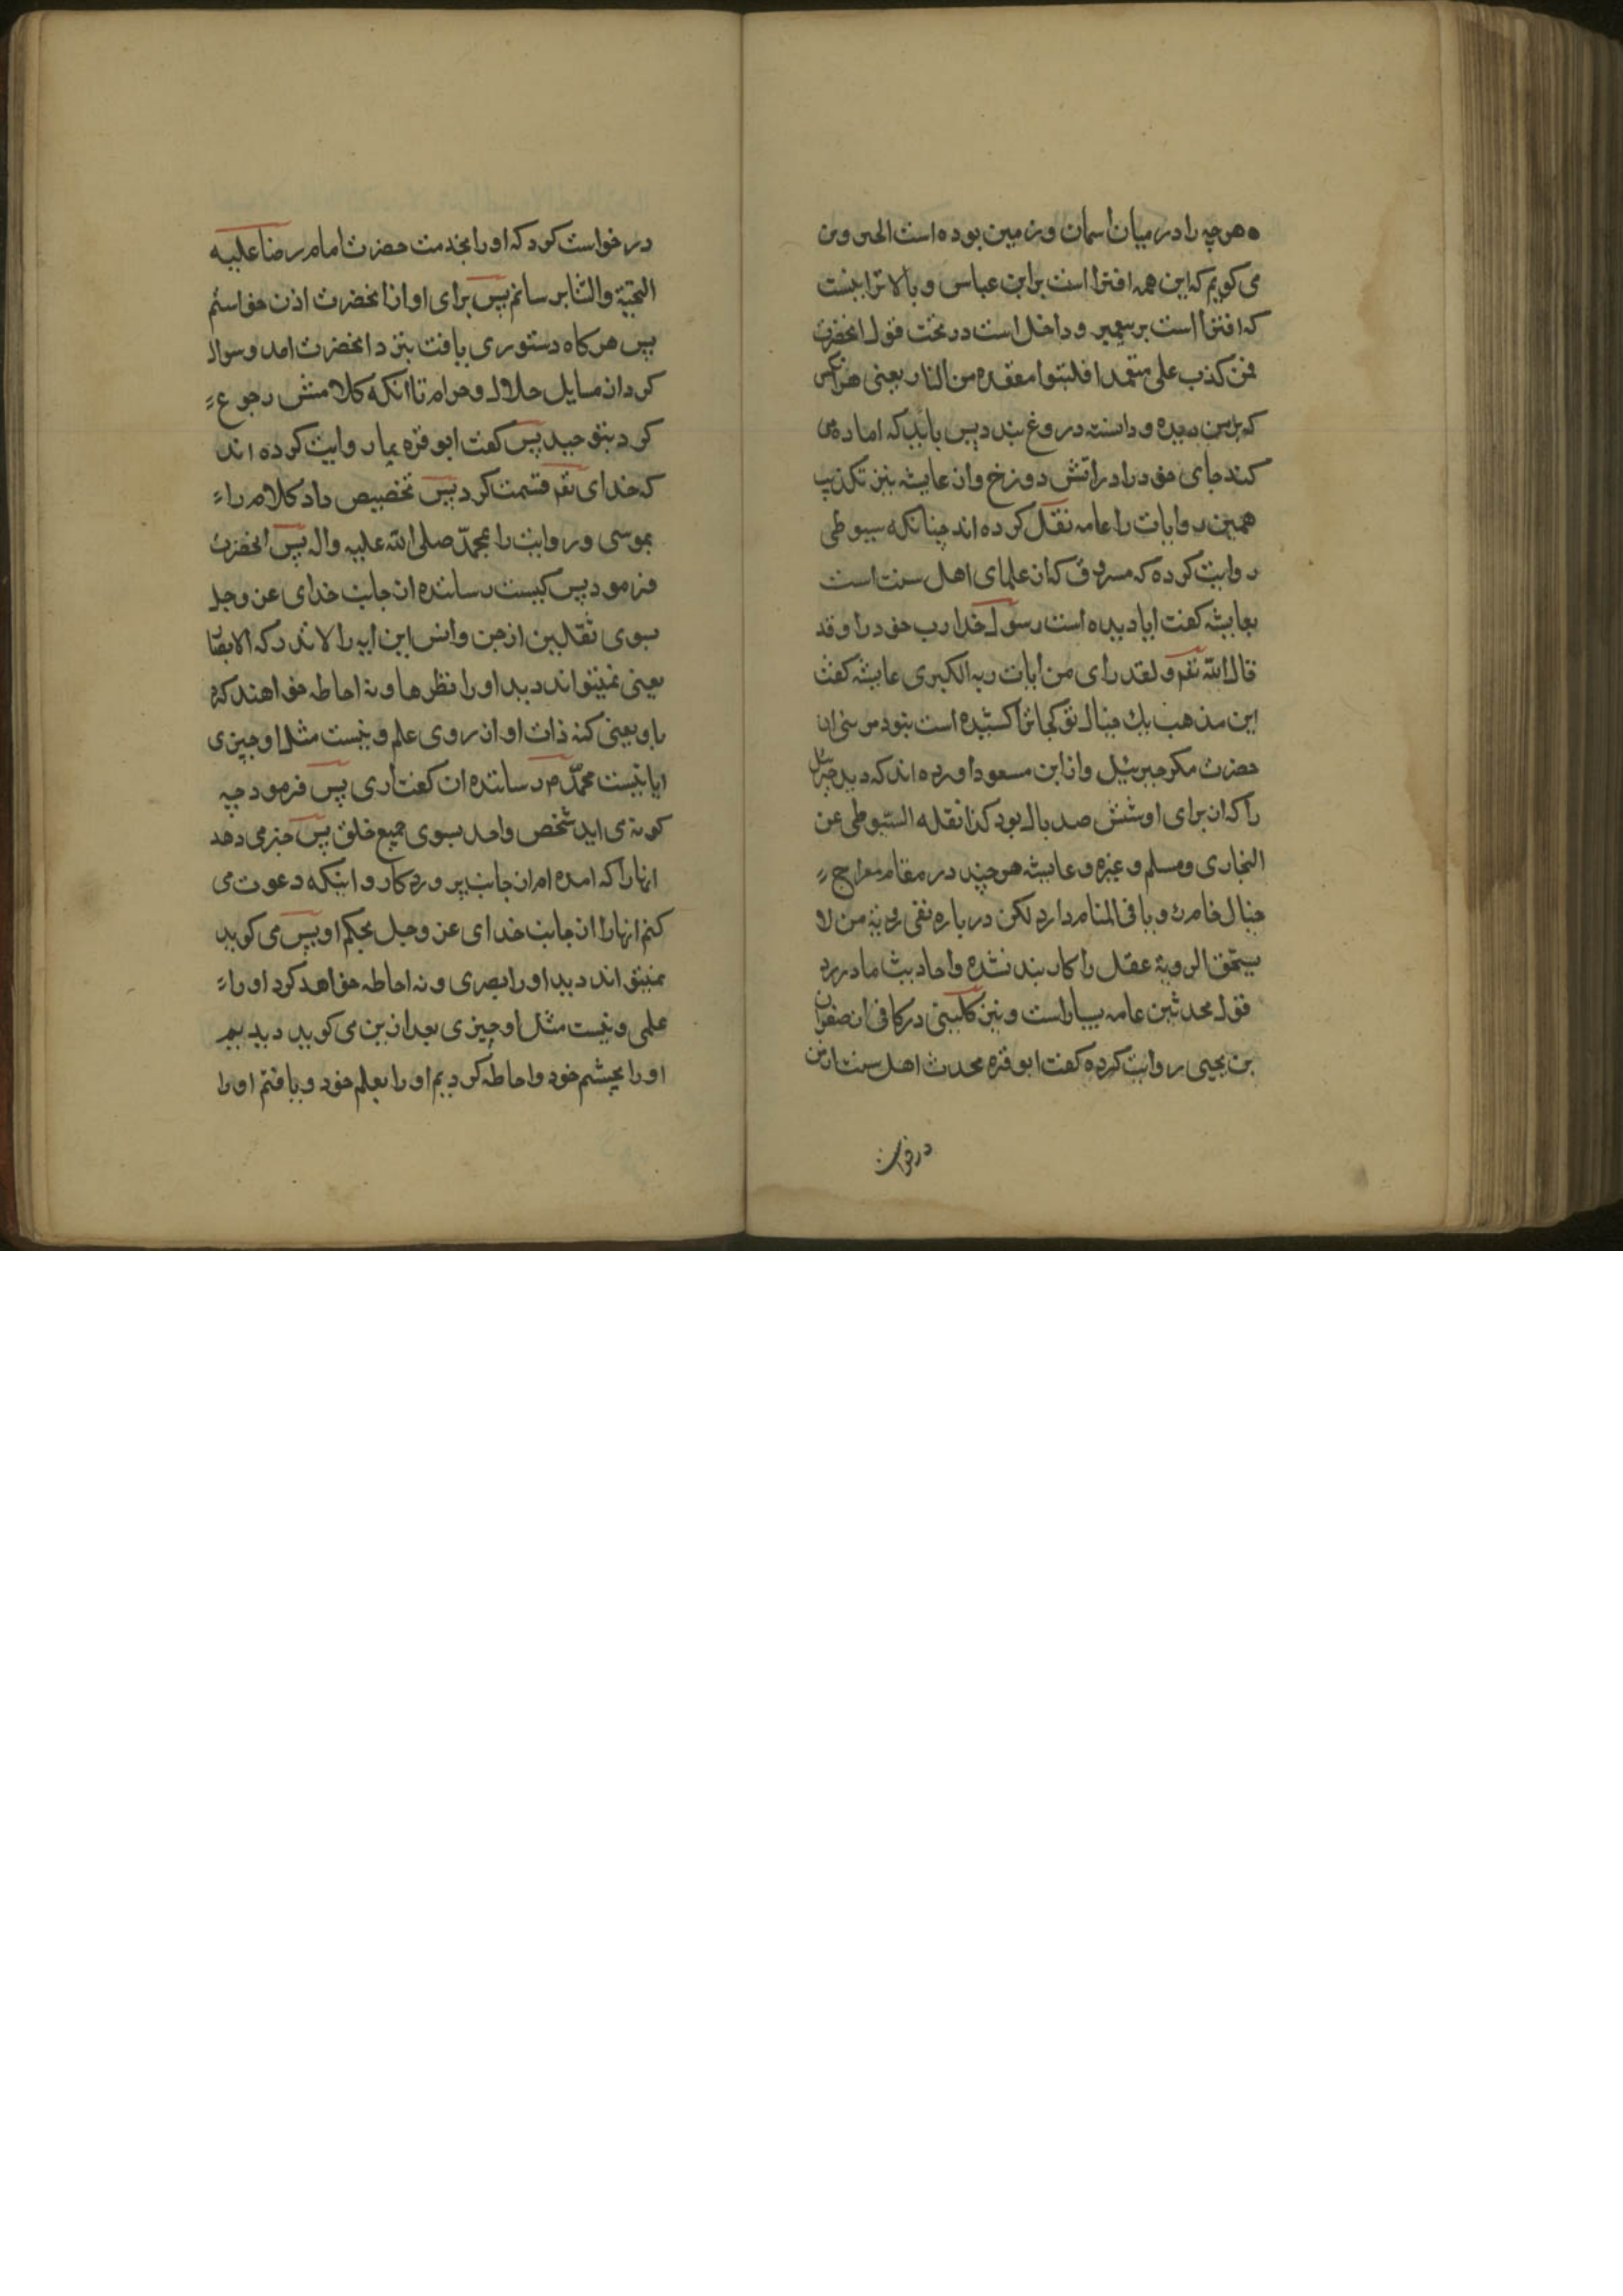 هرچه را در میان اسمان و زمین بوده است الحبر و من
می کویم که این همه افترا است بر ابن عباس و بالاتر اینست
که افترا است بر پیغمبر و داخل است در تحت قول انحضرت
فمن کذب علی متعمدا فلیتبوا مقعده من النار یعنی هر انکس
که بر من دیده و دانسته دروغ بندد پس باید که اماده می
کند جای خود را در اتش دوزخ و از عایشه نیز تکذیب
همین روایات را عامه نقل کرده اند چنانکه سیوطی
روایت کرده که مسروق که از علمای اهل سنت است
بعایشه کفت ایا دیده است رسول خدا رب خود را و قد
قال الله تعم و لقد رای من ایات ربه الکبری عایشه کفت
این مذهب بک خیال تو کجا ترا کشیده است نبود مرئی ان
حضرت مکر جبرئیل و از ابن مسعود اورده اند که دید جبرئیل
را که از برای او شش صد بال بود کذا نقله السیوطی عن
البخاری و مسلم و غیره و عایشه هر چند در مقام معراج
خیال خامرت و یا فی المنام دارد لکن در باره نفی رویة من لا
یستحق الرویة عقل را کار بند نشده و احادیث ما در رد
قول محدثین عامه بسیار است و نیز کلینی در کافی از صفوان
بن یحیی روایت کرده کفت ابو قره محدث اهل سنت از من
درخواست
درخواست کرد که او را بخدمت حضرت امام رضا علیه
التحیة و الثنا برسانم پس برای او از انحضرت اذن خواستم
پس هر کاه دستوری یافت بنزد انحضرت امد و سوال
کرد از مسایل حلال و حرام تا انکه کلامش رجوع
کرد بتوحید پس کفت ابو قره بما روایت کرده اند
که خدای تعم قسمت کرد پس تخصیص داد کلام را
بموسی و رویت را بمحمد صلی الله علیه واله پس انحضرت
فرمود پس کیست رساننده از جانب خدای عز و جل
بسوی ثقلین از جن و انس این ایه را لا تدرکه الابصار
یعنی نمیتواند دید او را نظرها و نه احاطه خواهند کرد
باو یعنی کنه ذات او از روی علم و نیست مثل او چیزی
ایا نیست محمد م رساننده ان کفت اری پس فرمود چه
کونه می اید شخص واحد بسوی جمیع خلق پس خبر می دهد
انها را که امده ام از جانب پروردکار و اینکه دعوت می
کنم انها را از جانب خدای عز و جل بحکم او پس می کوید
نمیتواند دید او را بصری و نه احاطه خواهد کرد او را
علمی و نیست مثل او چیزی بعد ازین می کوید دیدیم
او را بچشم خود و احاطه کردیم او را بعلم خود و یافتم او را